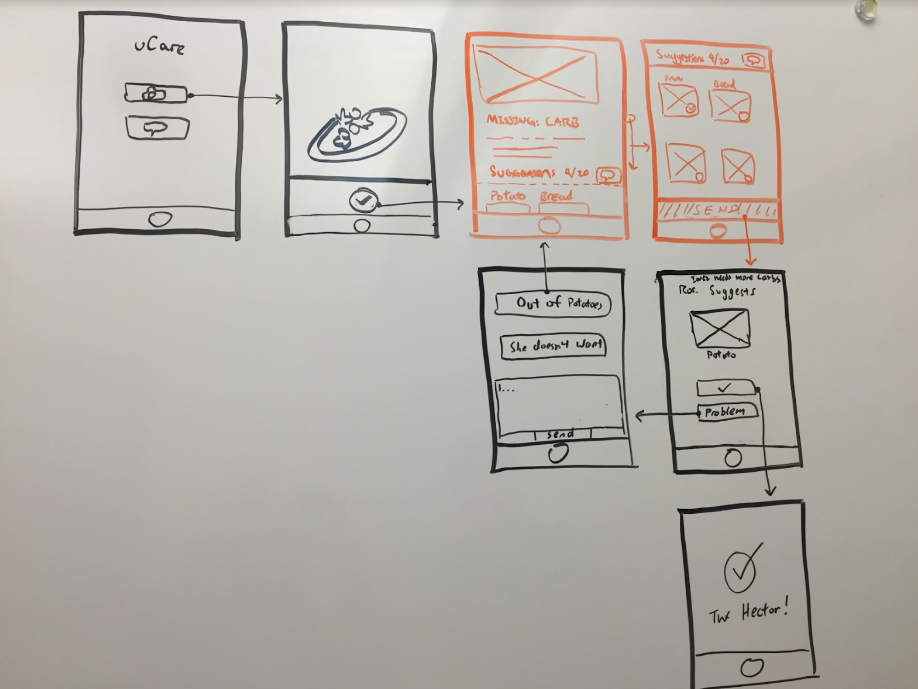 uCare
MISSING: CARB
SUGGESTIONS 4/20
Potato Bread
Suggestions 4/20
Bread
SEND
Out of Potatoes
She doesn't want
I...
Send
needs more carbs
Suggests
Potato
Problem
Tnx Hector!